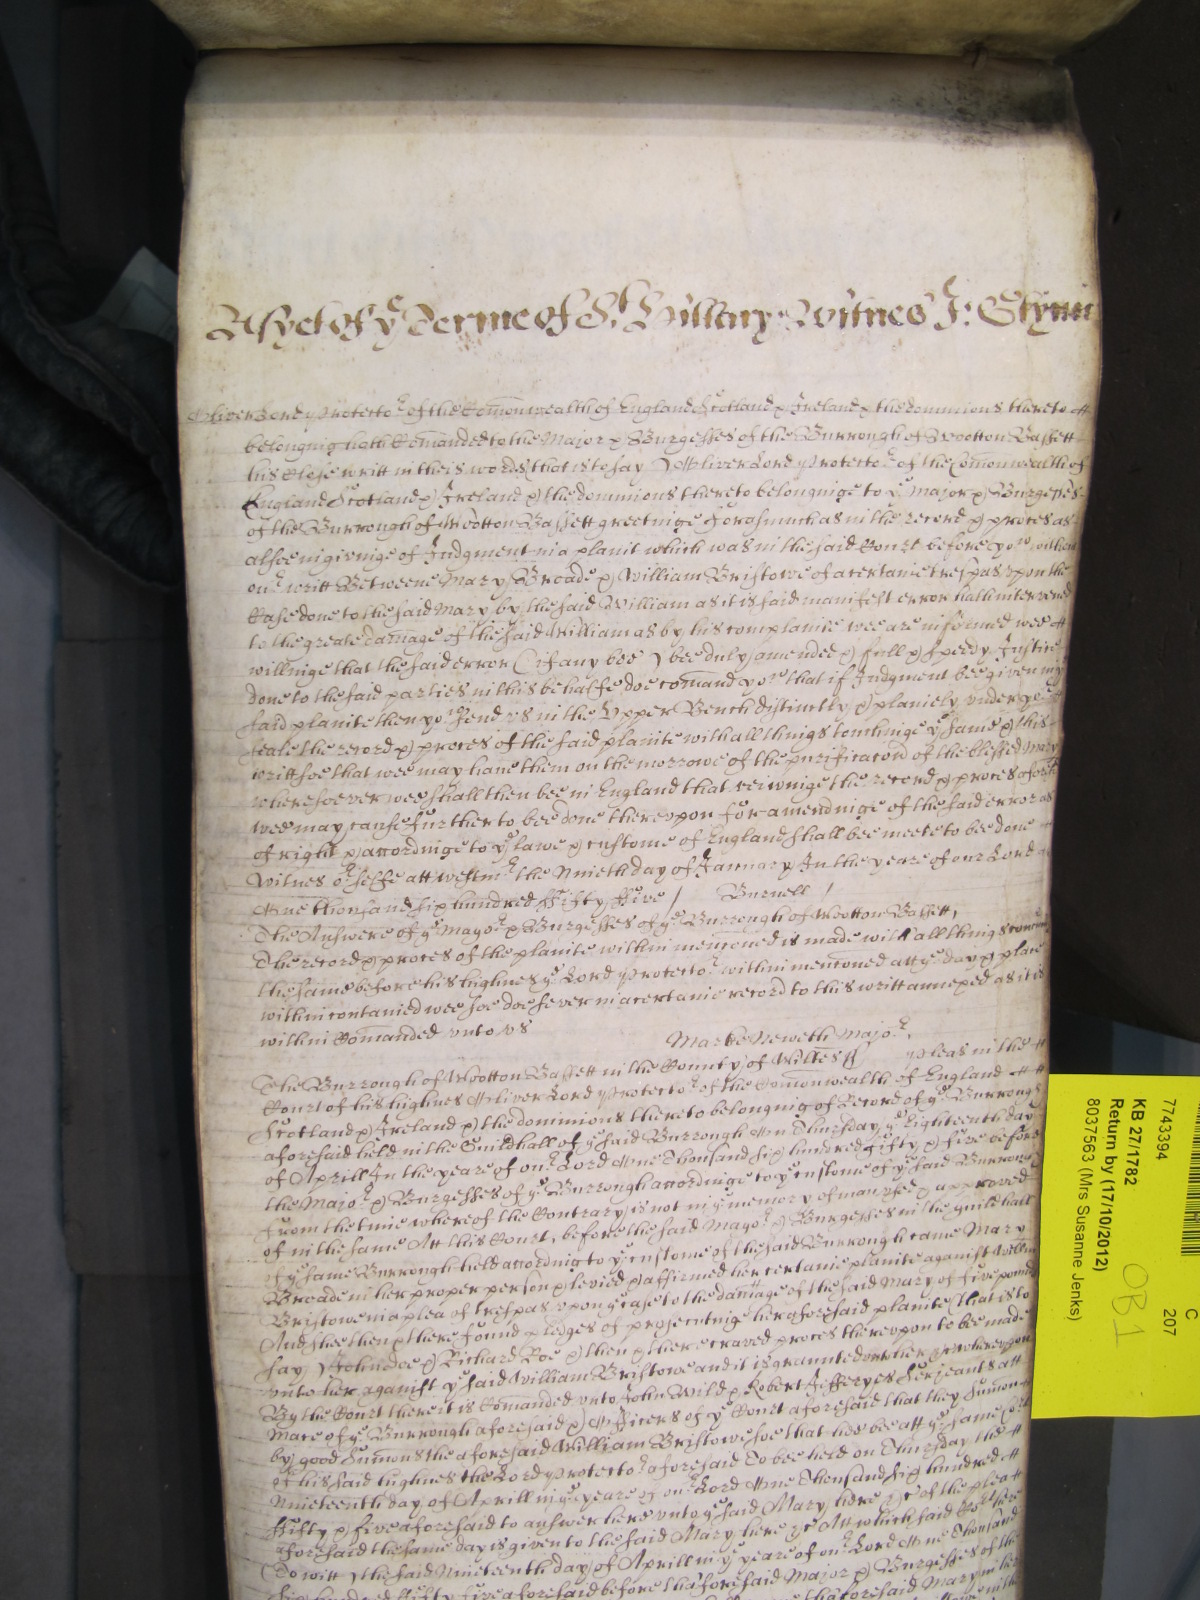 As yet of yᵉ Terme of Sᵗ Hillary Witnes J:
Oliver Lord Protectoʳ of the Comonwealth of England Scotland & Ireland & the dominions thereto
belonging hath Comanded to the Major & Burgesses of the Burrough of Wootton Bassett
his Close writt in theis words that is to say ) Oliver Lord Protectoʳ of the Comonwealth of
England Scotland & Ireland & the dominions thereto belonginge to yᵉ Major & Burgesses
of the Burrough of Wootton Bassett greetinge Forasmuch as in the record & proces as
alsoe in givinge of Judgment in a plaint which was in the said Court before yoʷ without
ouʳ writt Betweene Mary Breade & William Bristowe of a certaine trespas upon the
Case done to the said Mary by the said William as it is said manifest error hath intervened
to the greate damage of the said William as by his complainte wee are informed wee
willinge that the said error ( if any bee ) bee duly amended & full & speedy Justice
done to the said parties in this behalfe doe comand yoʷ that if Judgment bee given in yᵉ
said plainte then yoʷ send us in the Upper Bench distinctly & plainely under yoʳ
seale the record & proces of the said plainte with all things touchinge yᵉ same & this
writt soe that wee may have them on the morrowe of the purificacon of the blessed Mary
wheresoever wee shall then bee in England that veiwinge the record & proces aforesᵈ
wee may cause further to bee done thereupon for amendinge of the said error as
of right & accordinge to yᵉ lawe & custome of England shall bee meete to bee done
Witnes oʳ selfe att Westmʳ the Ninieth day of January In the yeare of our Lord
One thousand six hundred Fifty Five / Burnell /
The Answere of yᵉ Mayoʳ & Burgesses of yᵉ Burrough of Wootton Bassett,
The record & proces of the plainte within mencioned is made with all things
the same before his highnes yᵉ Lord Protectoʳ within mencioned att yᵉ day & place
within contained wee soe doe sever in a certaine record to this writt annexed as it is
within Comanded unto us Marke Neweth Majoʳ,
The Burrough of Wootton Bassett in the County of Wiltes ss Pleas in the
Court of his highnes Oliver Lord Protectoʳ of the Comonwealth of England
Scotland & Ireland & the dominions thereto belonging of Record of yᵉ Burrough
aforesaid held in the Guildhall of yᵉ said Burrough On Thursday yᵉ Eighteenth day
of Aprill In the yeare of ouʳ Lord One Thousand six hundred fifty & five before
the Majoʳ & Burgesses of yᵉ Burrough accordinge to yᵉ custome of yᵉ said Burrough
From the time whereof the Contrary is not in yᵉ memory of man used & approved
of in the same Att this Court, before the said Mayoʳ & Burgesses in the guildhall
of yᵉ same Burrough held according to yᵉ custome of the said Burrough came Mary
Breade in her proper person & levied & affirmed her certaine plainte against William
Bristowe in a plea of trespas upon yᵉ case to the damage of the said Mary of five pounds
And shee then & there found pledges of prosecutinge her aforesaid plainte (that is to
say ) John doe & Richard Roe & then & there craved proces thereupon to be made
unto her against yᵉ said William Bristowe and it is graunted unto her &c whereupon
By the Court there it is Comanded unto John Wild & Robert Jefferyes Serjeants att
Mace of yᵉ Burrough aforesaid & Officers of yᵉ Court aforesaid that they Sumon
by good Sumons the aforesaid William Bristowe soe that hee bee att yᵉ same Court
of his said highnes the Lord Protectoʳ aforesaid To bee held on Thursday the
Nineteenth day of Aprill in yᵉ yeare of ouʳ Lord One Thousand six hundred
Fifty & five aforesaid to answer here unto yᵉ said Mary here &c of the plea
aforesaid the same day is given to the said Mary here &c Att which said Court here
(To witt ) the said Nineteenth day of Aprill in yᵉ yeare of ouʳ Lord One Thousand
six hundred fifty five aforesaid before thaforesaid Major & Burgesses of the
thaforesaid Mary in her
C
207
7743394
KB 27/1782
Return by (17/10/2012)
8037563 (Mrs Susanne Jenks)
OB1